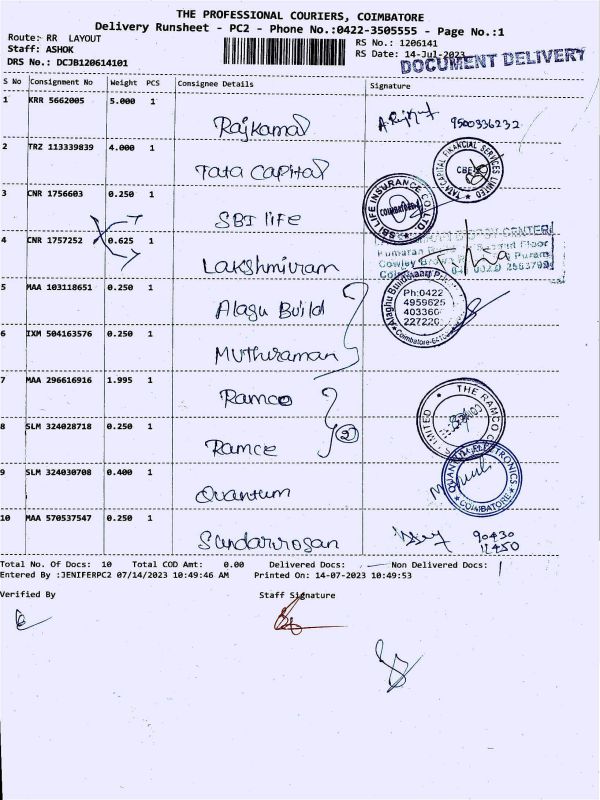 THE PROFESSIONAL COURIERS, COIMBATORE
Delivery Runsheet - PC2 - Phone No.:0422-3505555 - Page No.:1
Route:- RR LAYOUT
RS No.: 1206141
Staff: ASHOK
RS Date: 14-Jul-2023
DRS No.: DCJB120614101
DOCUMENT DELIVERY
S No Consignment No Weight PCS Consignee Details Signature
1 KRR 5662005 5.000 1 Rajkamal 9500336232
2 TRZ 113339839 4.000 1 Tata Capital
TATA CAPITAL FINANCIAL SERVICES LIMITED
CBE
3 CNR 1756603 0.250 1 SBI life
SBI LIFE INSURANCE CO. LTD.
COIMBATORE
4 CNR 1757252 0.625 1 Lakshmivram
Floor
Cowley Brown
Puram
5 MAA 103118651 0.250 1 Alagu Build
Ph:0422
4959625
227220
6 IXM 504163576 0.250 1 Muthuraman
7 MAA 296616916 1.995 1 Ramco
THE RAMCO
LIMITED
8 SLM 324028718 0.250 1 Ramce
2
9 SLM 324030708 0.400 1 Quantum
COIMBATORE
10 MAA 570537547 0.250 1 Sundarrosan 90430
12450
Total No. Of Docs: 10 Total COD Amt: 0.00 Delivered Docs: Non Delivered Docs:
Entered By :JENIFERPC2 07/14/2023 10:49:46 AM Printed On: 14-07-2023 10:49:53
Verified By Staff Signature